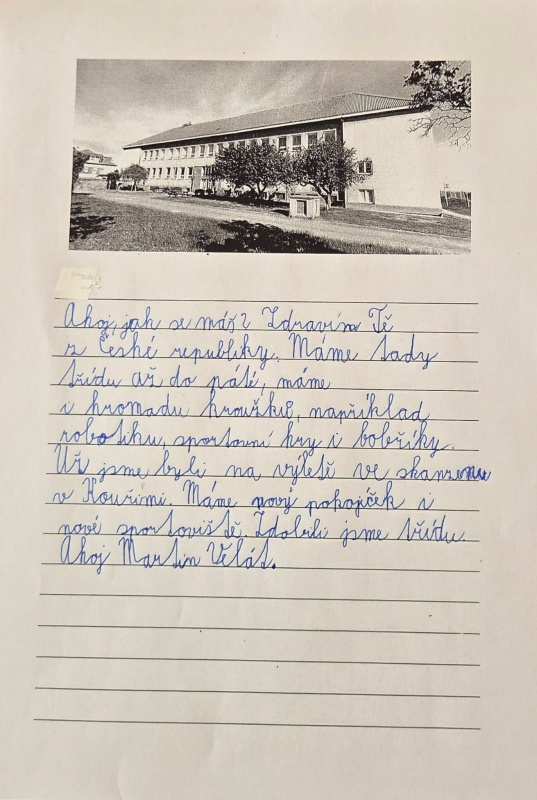 Ahoj, jak se máš? Zdravím Tě
z České republiky. Máme tady
třídu až do páté, máme
i hromadu kroužků, například
robotiku, sportovní hry i bobříky.
Už jsme byli na výletě ve skanzenu
v Kouřimi. Máme nový pokojíček i
nové sportoviště. Zdobili jsme třídu.
Ahoj Martin